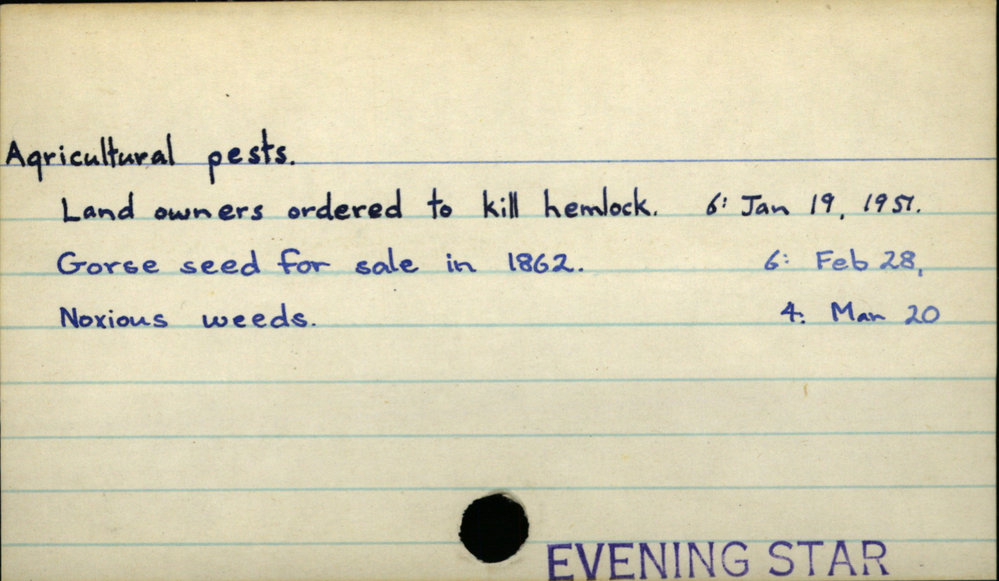 Agricultural pests.
Land owners ordered to kill hemlock. 6: Jan 19, 1951.
Gorse seed for sale in 1862. 6: Feb 28,
Noxious weeds. 4: Mar 20
EVENING STAR